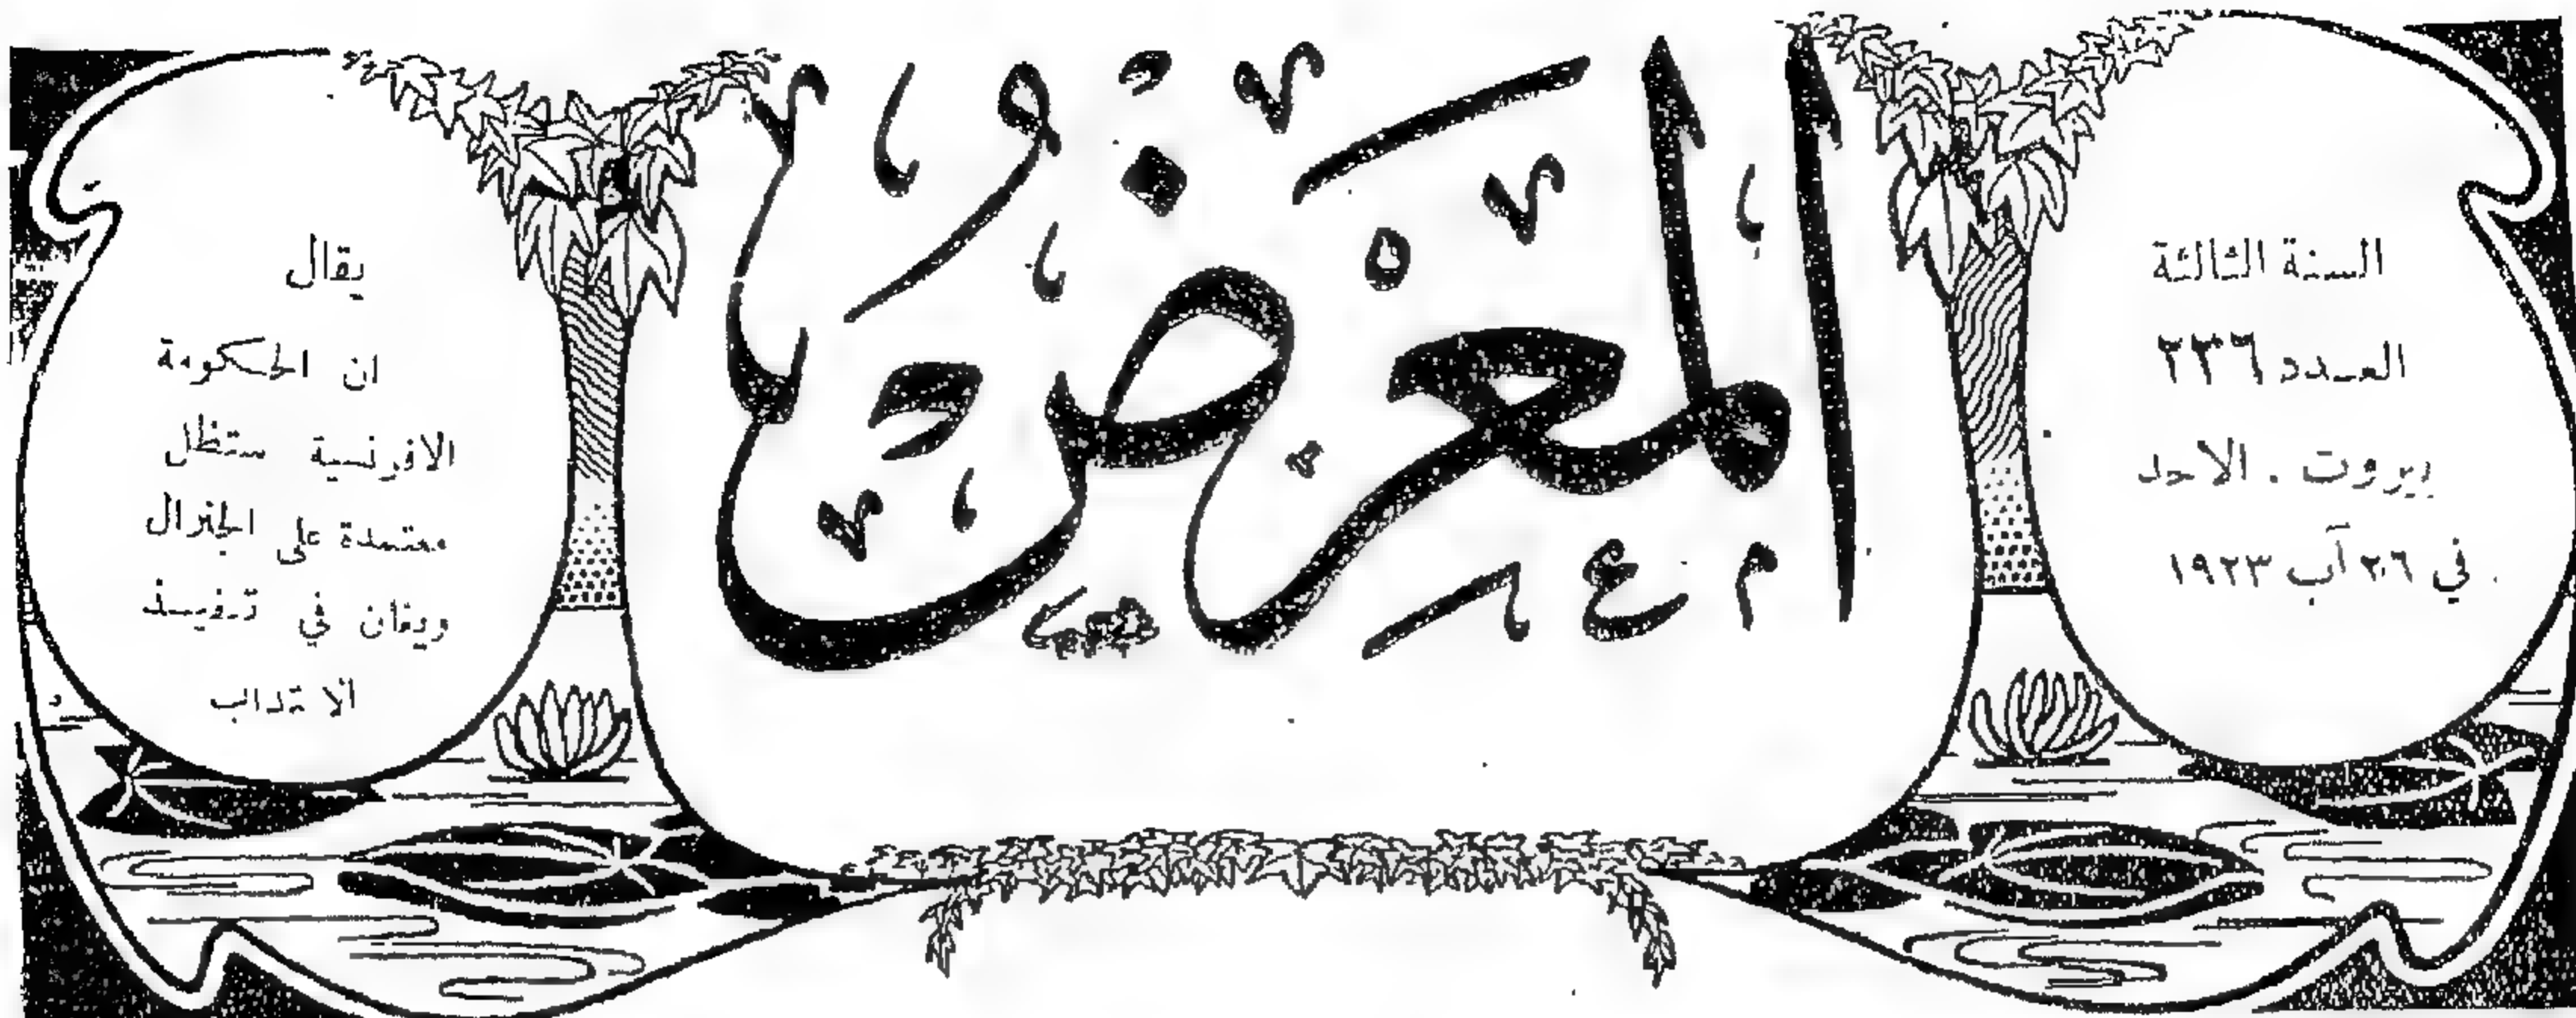 السنة الثالثة
العدد ٢٣٦
بيروت . الاحد
في ٢٦ آب ١٩٢٣
المعرض
يقال
ان الحكومة
الافرنسية ستظل
معتمدة على الجنرال
ويغان في تنفيذ
الانتداب